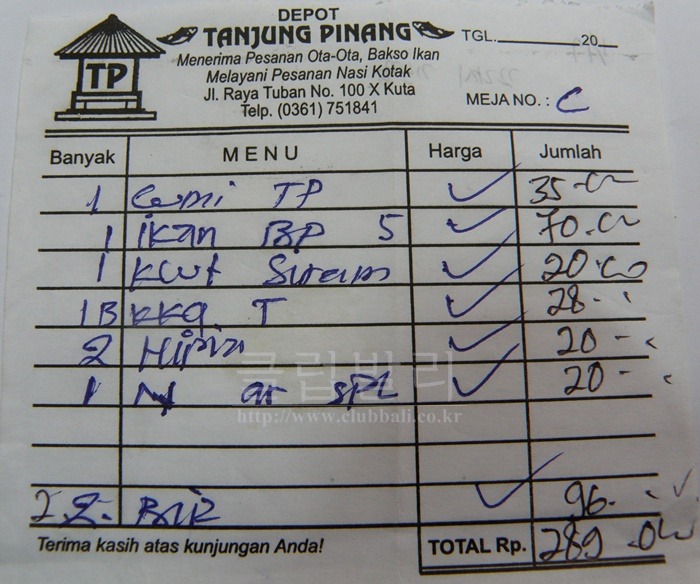 DEPOT
TANJUNG PINANG
TP
Menerima Pesanan Ota-Ota, Bakso Ikan
Melayani Pesanan Nasi Kotak
Jl. Raya Tuban No. 100 X Kuta
Telp. (0361) 751841
TGL. 20
MEJA NO. : C
Banyak MENU Harga Jumlah
1 Cumi TP ✓ 35-00
1 Ikan BP 5 ✓ 70-00
1 Siram ✓ 20-00
1B KKG T ✓ 28-
2 ✓ 20-
1 SPL ✓ 20-
BIR ✓ 96-
Terima kasih atas kunjungan Anda!
TOTAL Rp. 289-00
클럽발리
http://www.clubbali.co.kr